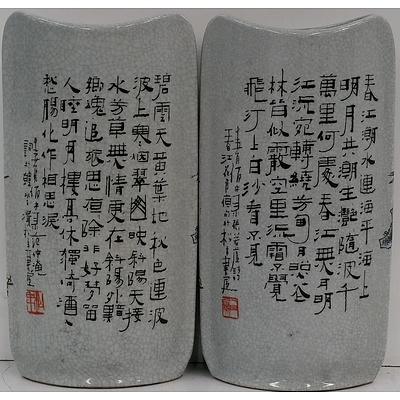 春江潮水連海平海上
明月共潮生艷隨波千
萬里何處春江無月明
江流宛轉繞芳甸月照花
林皆似霰空里流霜不覺
飛汀上白沙看不見
碧雲天黃葉地秋色連波
波上寒烟翠山映斜陽天接
水芳草無情更在斜陽外黯
鄉魂追旅思除非好夢留
人睡明月樓高休獨倚酒入
愁腸化作相思淚